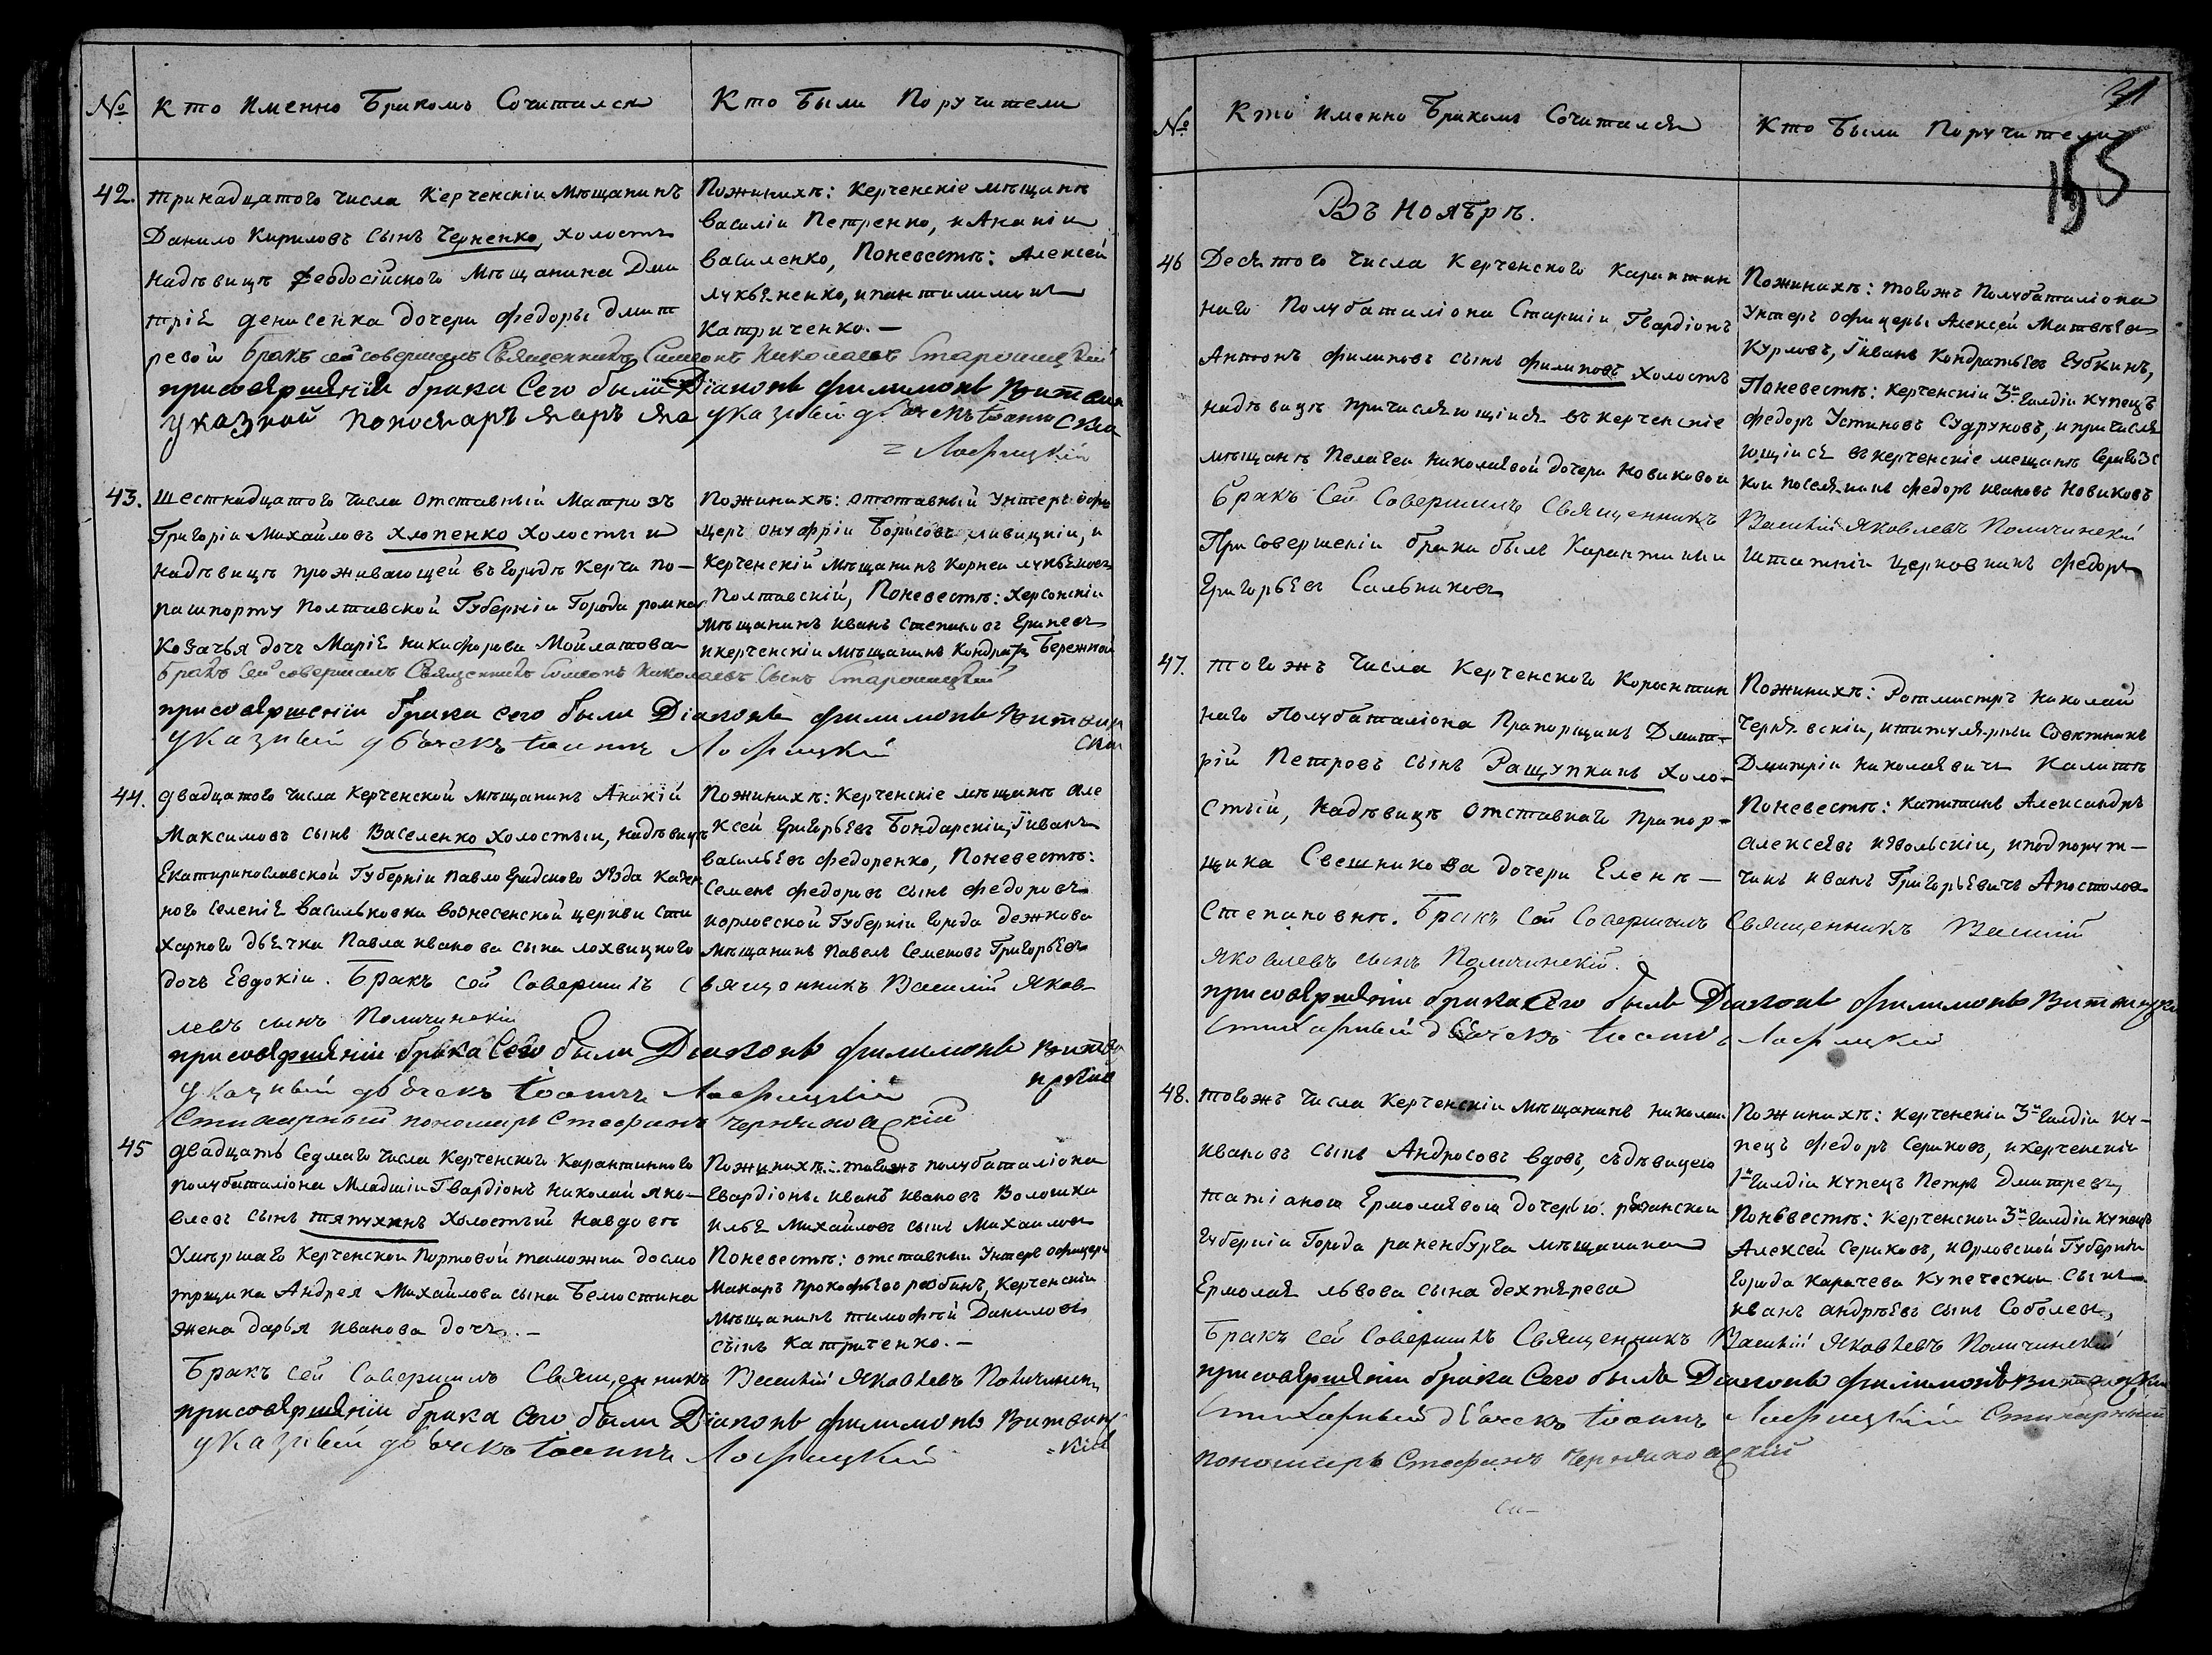 №
Кто Именно Бракомъ Сочитался
Кто Были Поручители
42.
тринадцатого числа Керченскіи Мѣщанинъ
Данило Кириловъ сынъ Черненко, холостъ
надѣвицѣ феодосійского Мѣщанина Дми
тріѣ денисенка дочери федоры дмит
ревой бракъ сей совершилъ Священникъ Симеонъ Николаевъ Старошецкий
присовершеніи брака Сего были Діаконъ филимонъ
указной Пономаръ указный дьячекъ Іоаннъ
Лофицкій
Пожинихѣ: Керченскіе мѣщанѣ
василіи Петренко, и Ананіи
василенко, Поневестѣ: Алексей
лукьѣненко, ипантилимонъ
Катриченко. —
43.
шестнадцатого числа отставный Матрозъ
Григоріи Михайловъ Хлопенко холостыи
надѣвицѣ проживающей въ городѣ Керчи по—
пашпорту Полтавской Губерніи Города ромна
Козачья дочъ Маріѣ никифорова Мойлатова
бракъ Сей совершилъ Священникъ Симеонъ Николаевъ Сынъ Старошецкий
присовершеніи брака сего были Діаконъ филимонъ
указный дьячекъ Іоаннъ Лофицкій
Пожинихѣ: отставный Унтеръ офи
церъ онуфріи Борисовъ ливицкіи, и
Керченскій мѣщанинъ Корнеи лукьѣновъ
Полтавскій, Поневестѣ: херсонскіи
мѣщанинъ иванъ степановъ
икерченскіи мѣщанинъ Кондратъ Бережной
44.
двадцатого числа Керченской мѣщанинъ Ананій
Максимовъ сынъ Василенко холостыи, надѣвицѣ
Екатиринославской Губерніи павлоградского Уѣзда казен
ного селеніѣ васильковки вознесенской церкви сти
харного дьѣчка Павла иванова сына лохвицкого
дочь Евдокіи. Бракъ сей Совершилъ Священникъ Василій Яков—
левъ сынъ Поличинскій
присовершеніи брака Сего были Діаконъ филимонъ
указный дьячекъ Іоаннъ Лофицкій
Стихарный пономарь Стефанъ Черняковскій
Пожинихѣ: Керченскіе мѣщанѣ але
ксей григорьѣвъ Бондарскіи, Іиванъ
васильѣвъ федоренко, Поневестѣ:
семенъ федоровъ сынъ федоровъ
иорловской Губерніи города дежнова
мѣщанинъ павелъ семеновъ Григорьѣвъ
45
двадцать седмаго числа Керченского Карантинного
полубаталіона Младшіи Гвардіонъ николай яко—
влевъ сынъ тяпухинъ холостый навдовѣ
Умѣршаго Керченской Портовой таможни досмо
трщика Андрея Михайлова сына Белостина
жена дарья иванова дочъ. —
Бракъ сей Совершилъ Священникъ Василій Яковлевъ Поличинск
присовершеніи брака Сего были Діаконъ филимонъ
указный дьячекъ Іоаннъ Лофицкій
Пожинихѣ: тогожъ полубаталіона
Гвардіоны иванъ ивановъ Волошка
ильѣ михайловъ сынъ Михаиловъ
Поневестѣ: отставныи Унтеръ офицеръ
макаръ прокофьѣвъ рябинъ, Керченскіи
мѣщанинъ тимофѣй Даниловъ
сынъ Катриченко. —
31
155
№
Кто Именно Бракомъ Сочитался
Кто Были Поручители
Въ Ноябрѣ.
46
Десѣтого числа Керченского Карантин
наго Полубаталіона Старшіи Гвардіонъ
Антонъ филиповъ сынъ филиповъ холостъ
надѣвицѣ причисляющійся въ керченскіе
мѣщанѣ Пелагеи николаѣвой дочери новиковой
бракъ Сей Совершилъ Священникъ Василій Яковлевъ Поличинскій
При Совершеніи брака былъ Карантиный штатній церковникъ федоръ
Григорьѣвъ Сальниковъ
Пожинихѣ: тогожъ Полубаталіона
Унтеръ офицеры Алексей Матвѣѣв
Курловъ, Іиванъ Кондратьѣв Губкинъ,
Поневестѣ: Керченскіи 3й гилдіи купецъ
федоръ Устиновъ Судруновъ, ипричисля
ющіисѣ въ керченскіе мещанѣ
кои поселянинъ федоръ ивановъ Новиковъ
47.
тогожъ числа Керченского Корантин
наго Полубаталіона Прапорщикъ Дмит—
рій Петровъ сынъ Ращупкинъ холо—
стый, надѣвицѣ отставнаго прапор—
щика Свешникова дочери Еленѣ —
Степановнѣ. Бракъ Сей Совершилъ Священникъ Василій
Яковлевъ сынъ Поличинскій.
присовершеніи брака Сего былъ Діаконъ филимонъ
Стихарный дьячекъ Іоаннъ Лофицкій
Пожинихѣ: Ротмистръ николай
Чернявскіи, ититулярныи Советникъ
Дмитріи николаѣвичъ Калита
Поневестѣ: капитанъ Александръ
алексеѣвъ иподпорут—
чикъ иванъ Григорьѣвичъ Апостолов
48.
тогожъ числа Керченскіи мѣщанинъ николаи
ивановъ сынъ Андросовъ вдовъ, съдѣвицею
татіаною Ермолаѣвою дочерью. резанской
губерніи города раненбурга мѣщанина
Ермолаѣ львова сына дехтѣрева
Бракъ сей Совершилъ Священникъ Василій Яковлевъ Поличинскій
присовершеніи брака Сего былъ Діаконъ филимонъ
Стихарный дьячекъ Іоаннъ Лофицкій Стихарный
пономарь Стефанъ Черняковскій
Пожинихѣ: Керченскіи 3й гилдіи ку—
пецъ федоръ Сериковъ, икерченскіи
1й гилдіи купецъ Петръ Дмитревъ,
Поневестѣ: Керченскои 3й гилдіи купецъ
Алексей Сериковъ, иорловской Губерніи
города Карачева Купеческои сынъ
иванъ андрѣѣвъ сынъ Соболевъ,